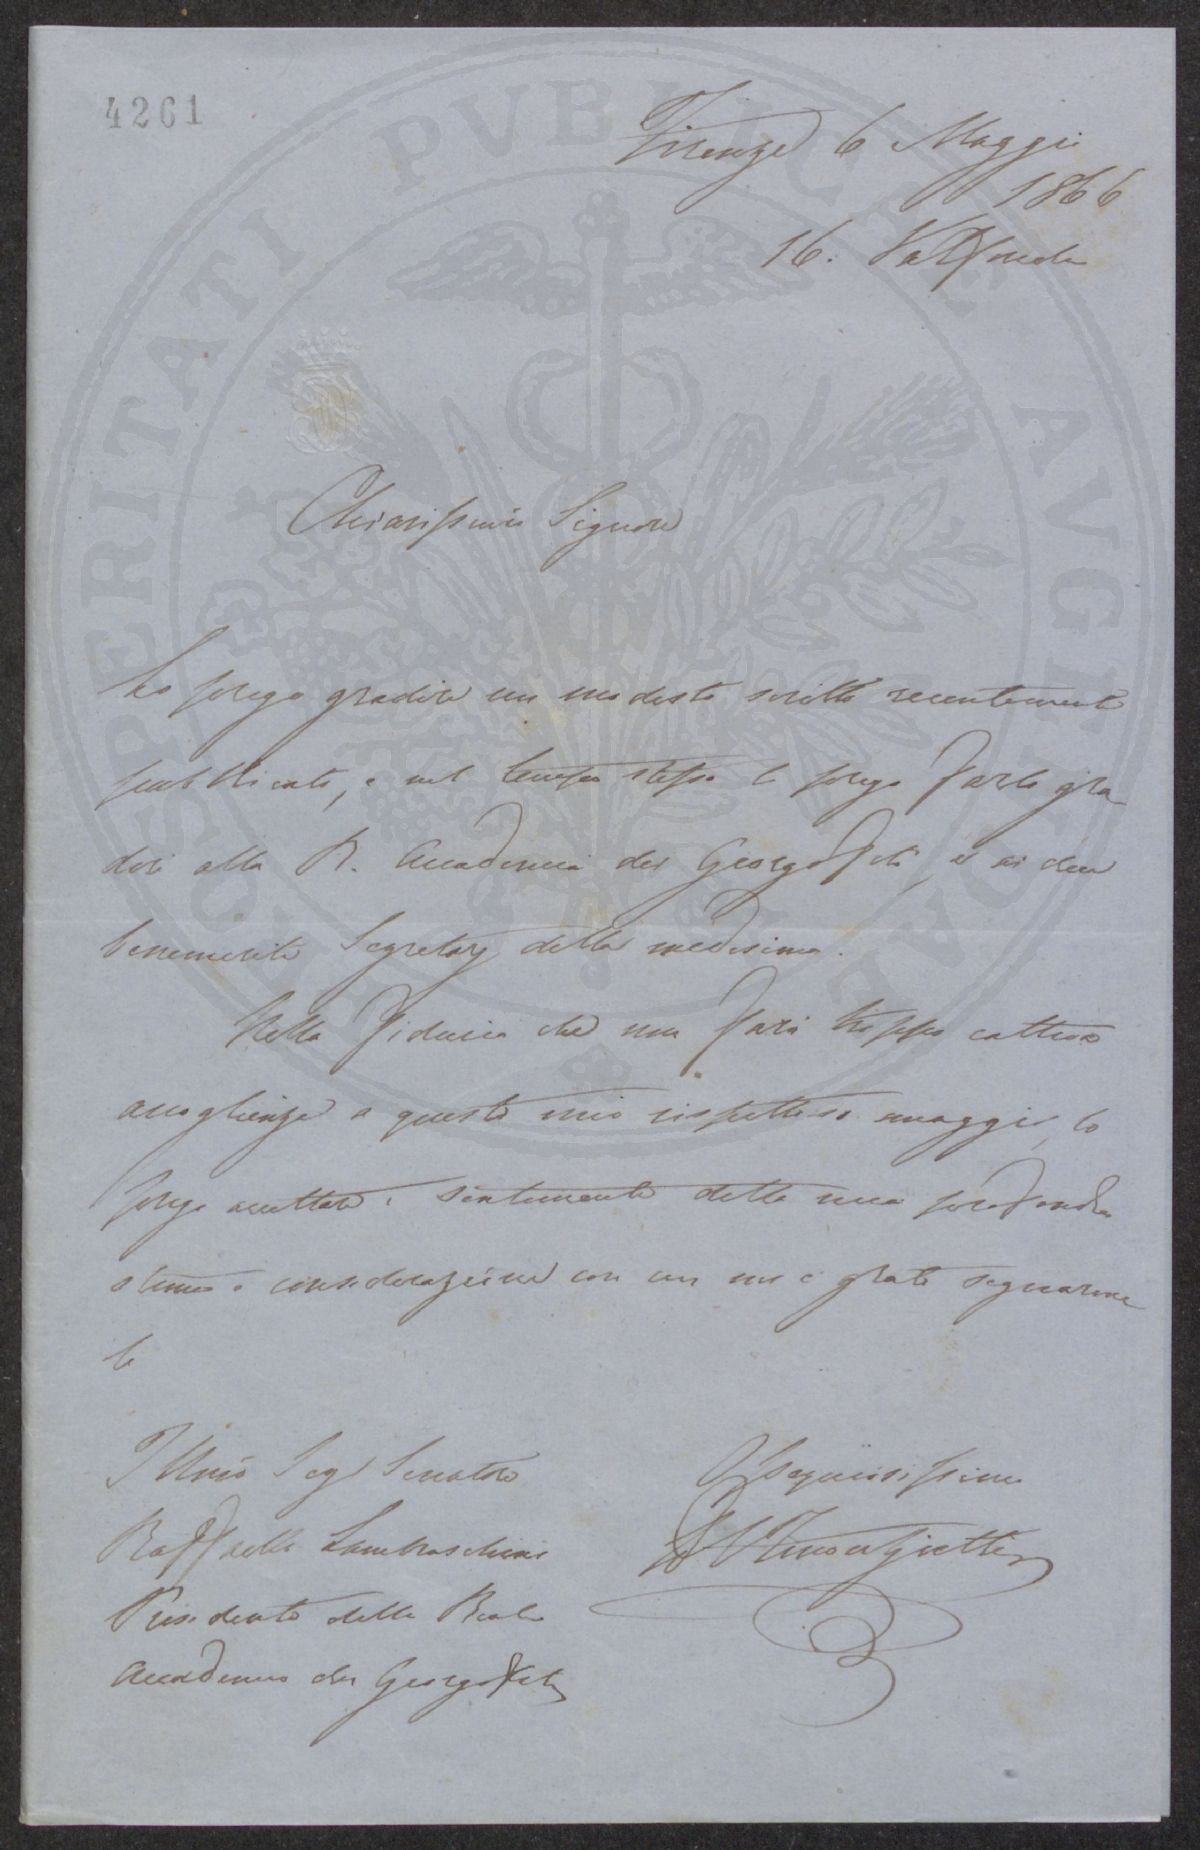 4261
PROSPERITATI PVBLICAE AVGENDAE
Firenze 6 Maggio
1866
16. Valfonda
Chiarissimo Signore
La prego gradire un modesto scritto recentement
pubblicato, e nel tempo stesso la prego farlo gra
dire alla R. Accademia dei Georgofili, e ai due
benemeriti Segretarj della medesima.
Nella fiducia che non farà troppo cattiva
accoglienza a questo mio rispettoso omaggio, la
prego accettare i sentimenti della mia profonda
stima e considerazione con cui mi è grato segnarme
le
Illmo Sigr Senatore
Raffaelle Lambruschini
Presidente della Reale
Accademia dei Georgofili
Ossequiosissimo